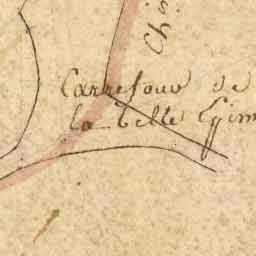 Ch
Carrefour de
la belle Epine